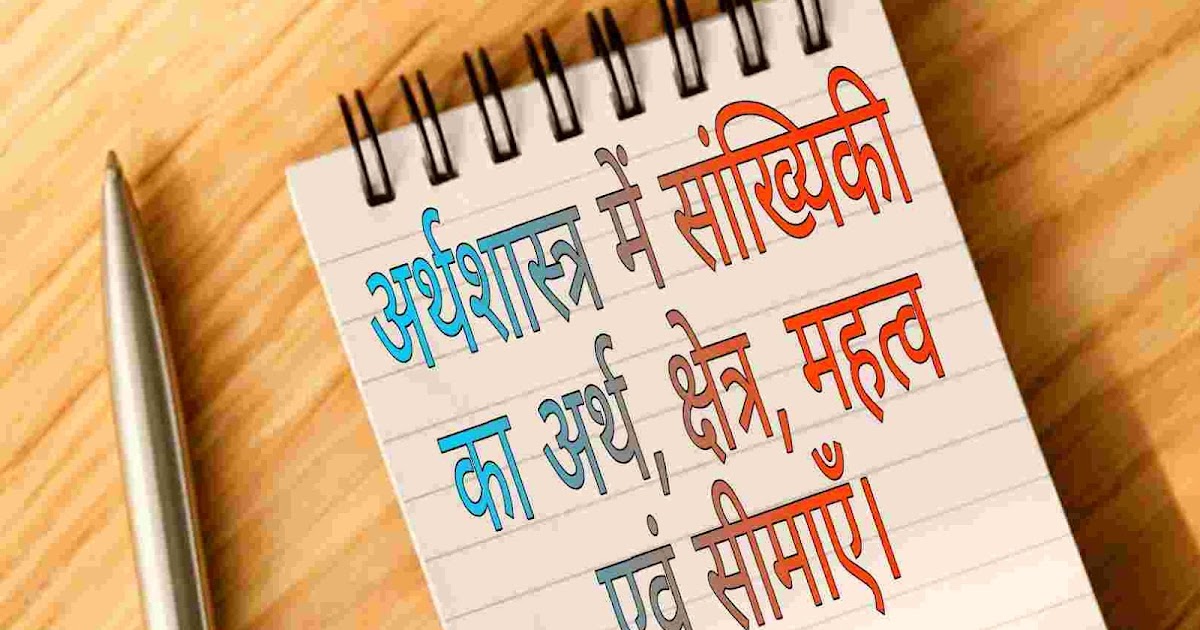 अर्थशास्त्र में सांख्यिकी
का अर्थ, क्षेत्र, महत्व
एवं सीमाएँ।